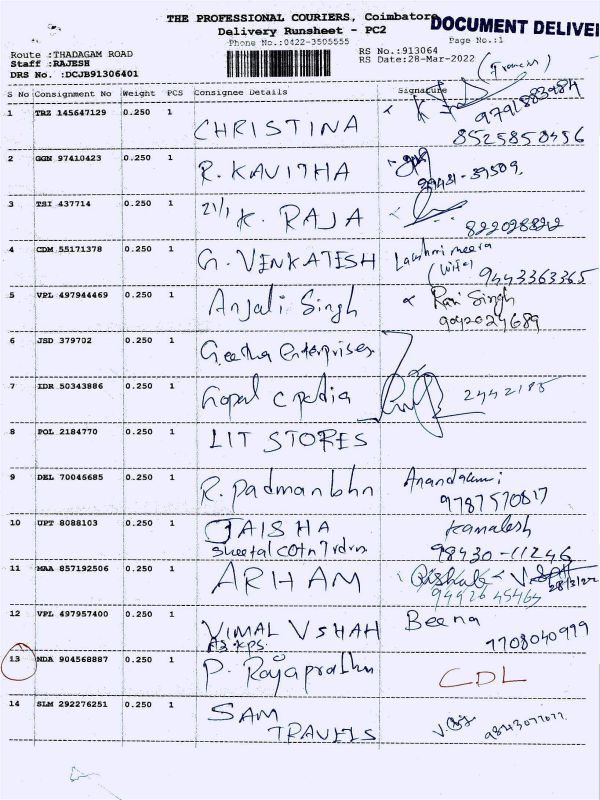 THE PROFESSIONAL COURIERS, Coimbatore
DOCUMENT DELIVE
Delivery Runsheet - PC2
Phone No.:0422-3505555
Page No.:1
Route :THADAGAM ROAD
RS No.:913064
Staff :RAJESH
RS Date:28-Mar-2022
DRS No. :DCJB91306401
(Francis)
S No Consignment No Weight PCS Consignee Details Signature
1 TRZ 145647129 0.250 1 CHRISTINA
8525858456
2 GGN 97410423 0.250 1 R. KAVITHA
3 TSI 437714 0.250 1 21/1 K. RAJA
4 CDM 55171378 0.250 1 G. VENKATESH Lakshmi meera
(Wife) 9443363365
5 VPL 497944469 0.250 1 Anjali Singh Rani Singh
9042024689
6 JSD 379702 0.250 1 Geetha enterprises
7 IDR 50343886 0.250 1 Gopal 2442185
8 POL 2184770 0.250 1 LIT STORES
9 DEL 70046685 0.250 1 R. Padmanbhn
9787570817
10 UPT 8088103 0.250 1 JAISHA Kamalesh
Sheetal 98430-11246
11 MAA 857192506 0.250 1 ARHAM
28/3/22
12 VPL 497957400 0.250 1 VIMAL V SHAH Beena
7708040999
13 NDA 904568887 0.250 1 P. Rajaprabhu CDL
14 SLM 292276251 0.250 1 SAM
TRAVELS